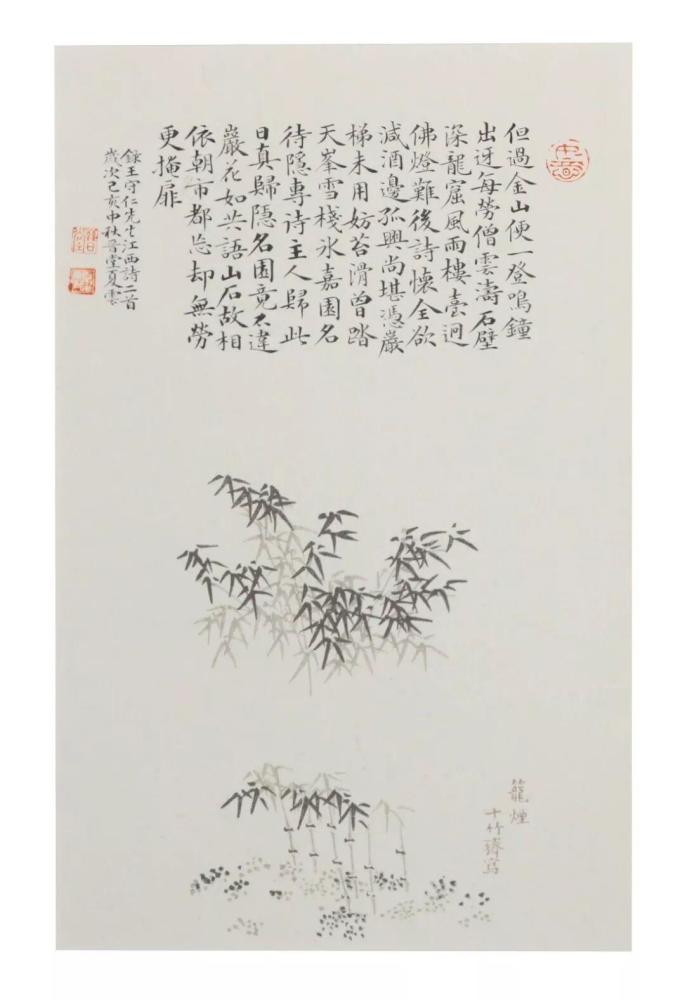 但過金山便一登鳴鐘
出迓每勞僧雲濤石壁
深龍窟風雨樓臺迥
佛燈難後詩懷全欲
減酒邊孤興尚堪憑巖
梯未用妨苔滑曾踏
天峯雪棧冰嘉園名
待隱專詩主人歸此
日真歸隱名園竟不違
巖花如共語山石故相
依朝市都忘却無勞
更掩扉
錄王守仁先生江西詩二首
歲次己亥中秋堂夏雲
籠煙
十竹齋寫